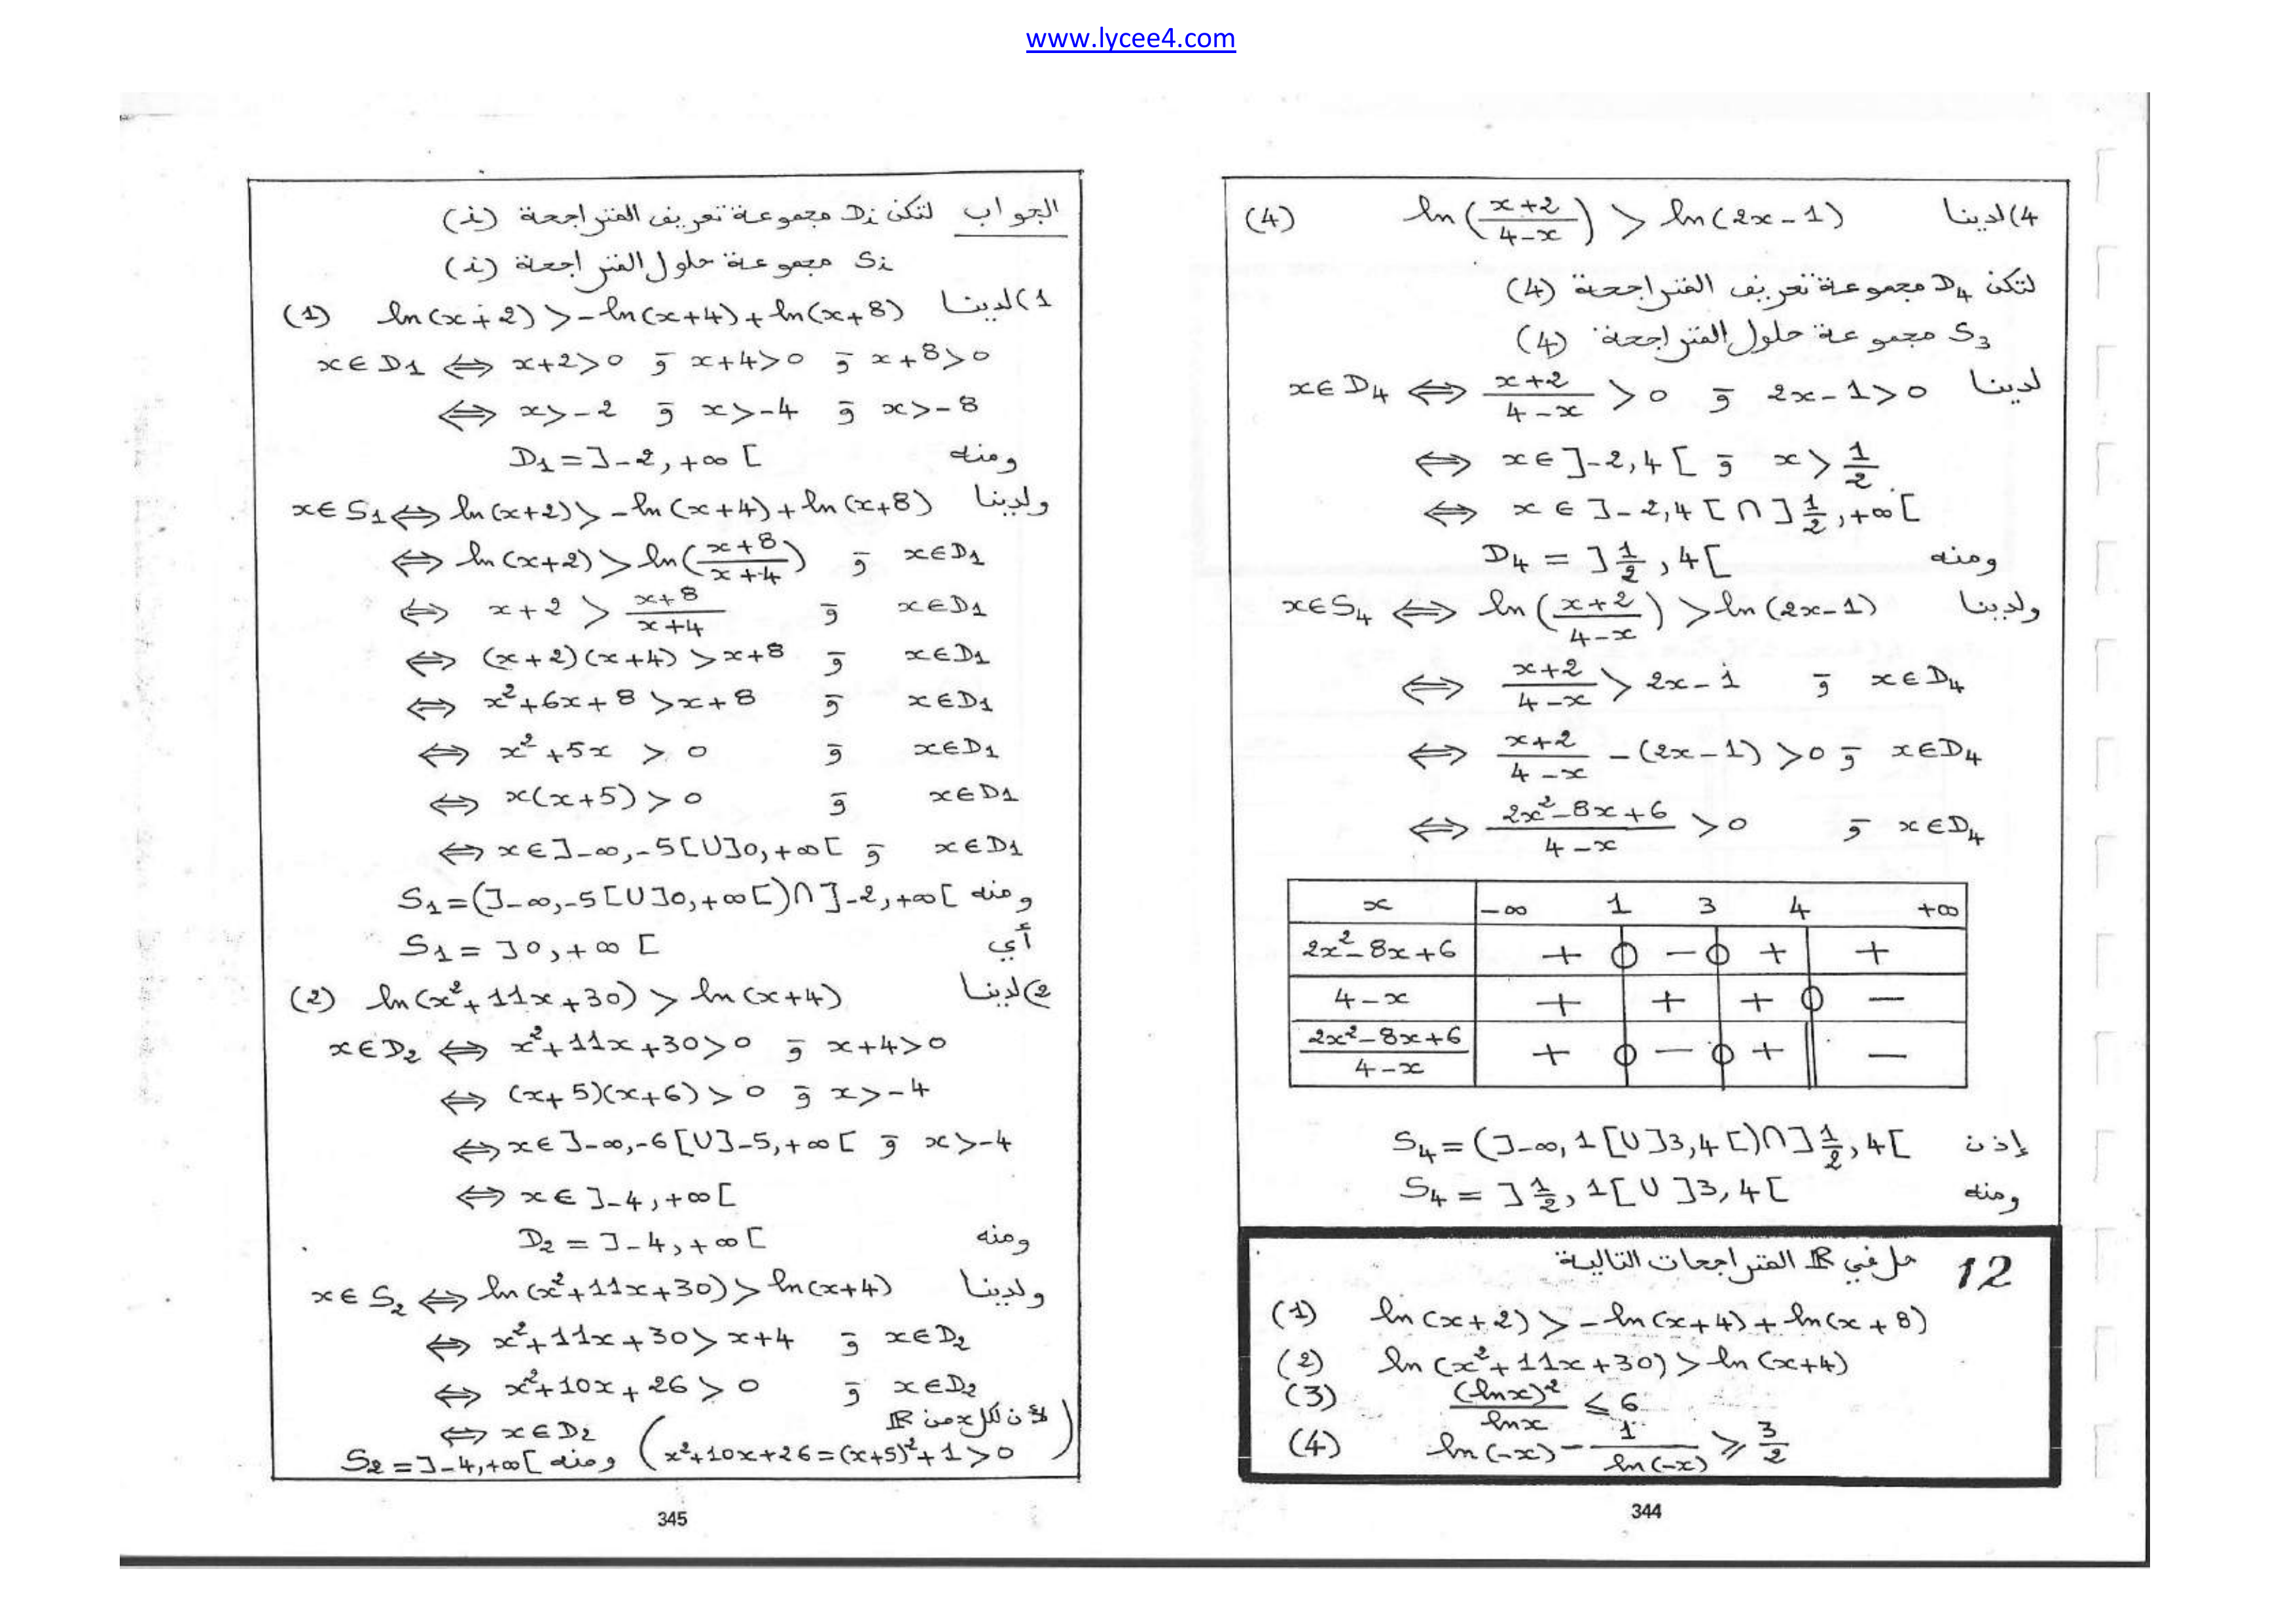 www.lycee4.com
4) لدينا ln((x+2)/(4-x)) > ln(2x-1) (4)
لتكن D₄ مجموعة تعريف المتراجحة (4)
S₃ مجموعة حلول المتراجحة (4)
لدينا x∈D₄ ⇔ (x+2)/(4-x) > 0 و 2x-1>0
⇔ x∈]-2,4[ و x > 1/2
⇔ x∈]-2,4[∩]1/2,+∞[
ومنه D₄ = ]1/2,4[
ولدينا x∈S₄ ⇔ ln((x+2)/(4-x)) > ln(2x-1)
⇔ (x+2)/(4-x) > 2x-1 و x∈D₄
⇔ (x+2)/(4-x) - (2x-1) > 0 و x∈D₄
⇔ (2x²-8x+6)/(4-x) > 0 و x∈D₄
x -∞ 1 3 4 +∞
2x²-8x+6 + 0 - 0 + +
4-x + + + 0 -
(2x²-8x+6)/(4-x) + 0 - 0 + || -
إذن S₄ = (]-∞,1[∪]3,4[)∩]1/2,4[
ومنه S₄ = ]1/2,1[∪]3,4[
12 حل في ℝ المتراجحات التالية
(1) ln(x+2) > -ln(x+4) + ln(x+8)
(2) ln(x²+11x+30) > ln(x+4)
(3) (lnx)²/lnx ≤ 6
(4) ln(-x) - 1/ln(-x) ≥ 3/2
344
الجواب لتكن Di مجموعة تعريف المتراجحة (i)
Si مجموعة حلول المتراجحة (i)
1) لدينا ln(x+2) > -ln(x+4) + ln(x+8) (1)
x∈D₁ ⇔ x+2>0 و x+4>0 و x+8>0
⇔ x>-2 و x>-4 و x>-8
ومنه D₁ = ]-2,+∞[
ولدينا x∈S₁ ⇔ ln(x+2) > -ln(x+4) + ln(x+8)
⇔ ln(x+2) > ln((x+8)/(x+4)) و x∈D₁
⇔ x+2 > (x+8)/(x+4) و x∈D₁
⇔ (x+2)(x+4) > x+8 و x∈D₁
⇔ x²+6x+8 > x+8 و x∈D₁
⇔ x²+5x > 0 و x∈D₁
⇔ x(x+5) > 0 و x∈D₁
⇔ x∈]-∞,-5[∪]0,+∞[ و x∈D₁
ومنه S₁ = (]-∞,-5[∪]0,+∞[)∩]-2,+∞[
أي S₁ = ]0,+∞[
2) لدينا ln(x²+11x+30) > ln(x+4) (2)
x∈D₂ ⇔ x²+11x+30>0 و x+4>0
⇔ (x+5)(x+6)>0 و x>-4
⇔ x∈]-∞,-6[∪]-5,+∞[ و x>-4
⇔ x∈]-4,+∞[
ومنه D₂ = ]-4,+∞[
ولدينا x∈S₂ ⇔ ln(x²+11x+30) > ln(x+4)
⇔ x²+11x+30 > x+4 و x∈D₂
⇔ x²+10x+26 > 0 و x∈D₂
⇔ x∈D₂ (لأن لكل x من ℝ
x²+10x+26=(x+5)²+1>0) ومنه S₂=]-4,+∞[
345